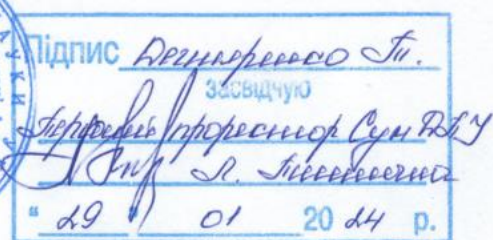 УКИ
Підпис Дегтяренко Т.
засвідчую
Перший проректор СумДПУ
Л. Пшенична
" 29 " 01 20 24 р.